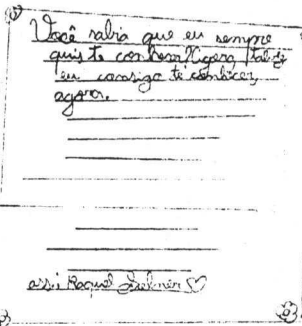 Você sabia que eu sempre
quis te conhecer Ligera, tal
eu consigo te conhecer
agora.
ass: Raquel